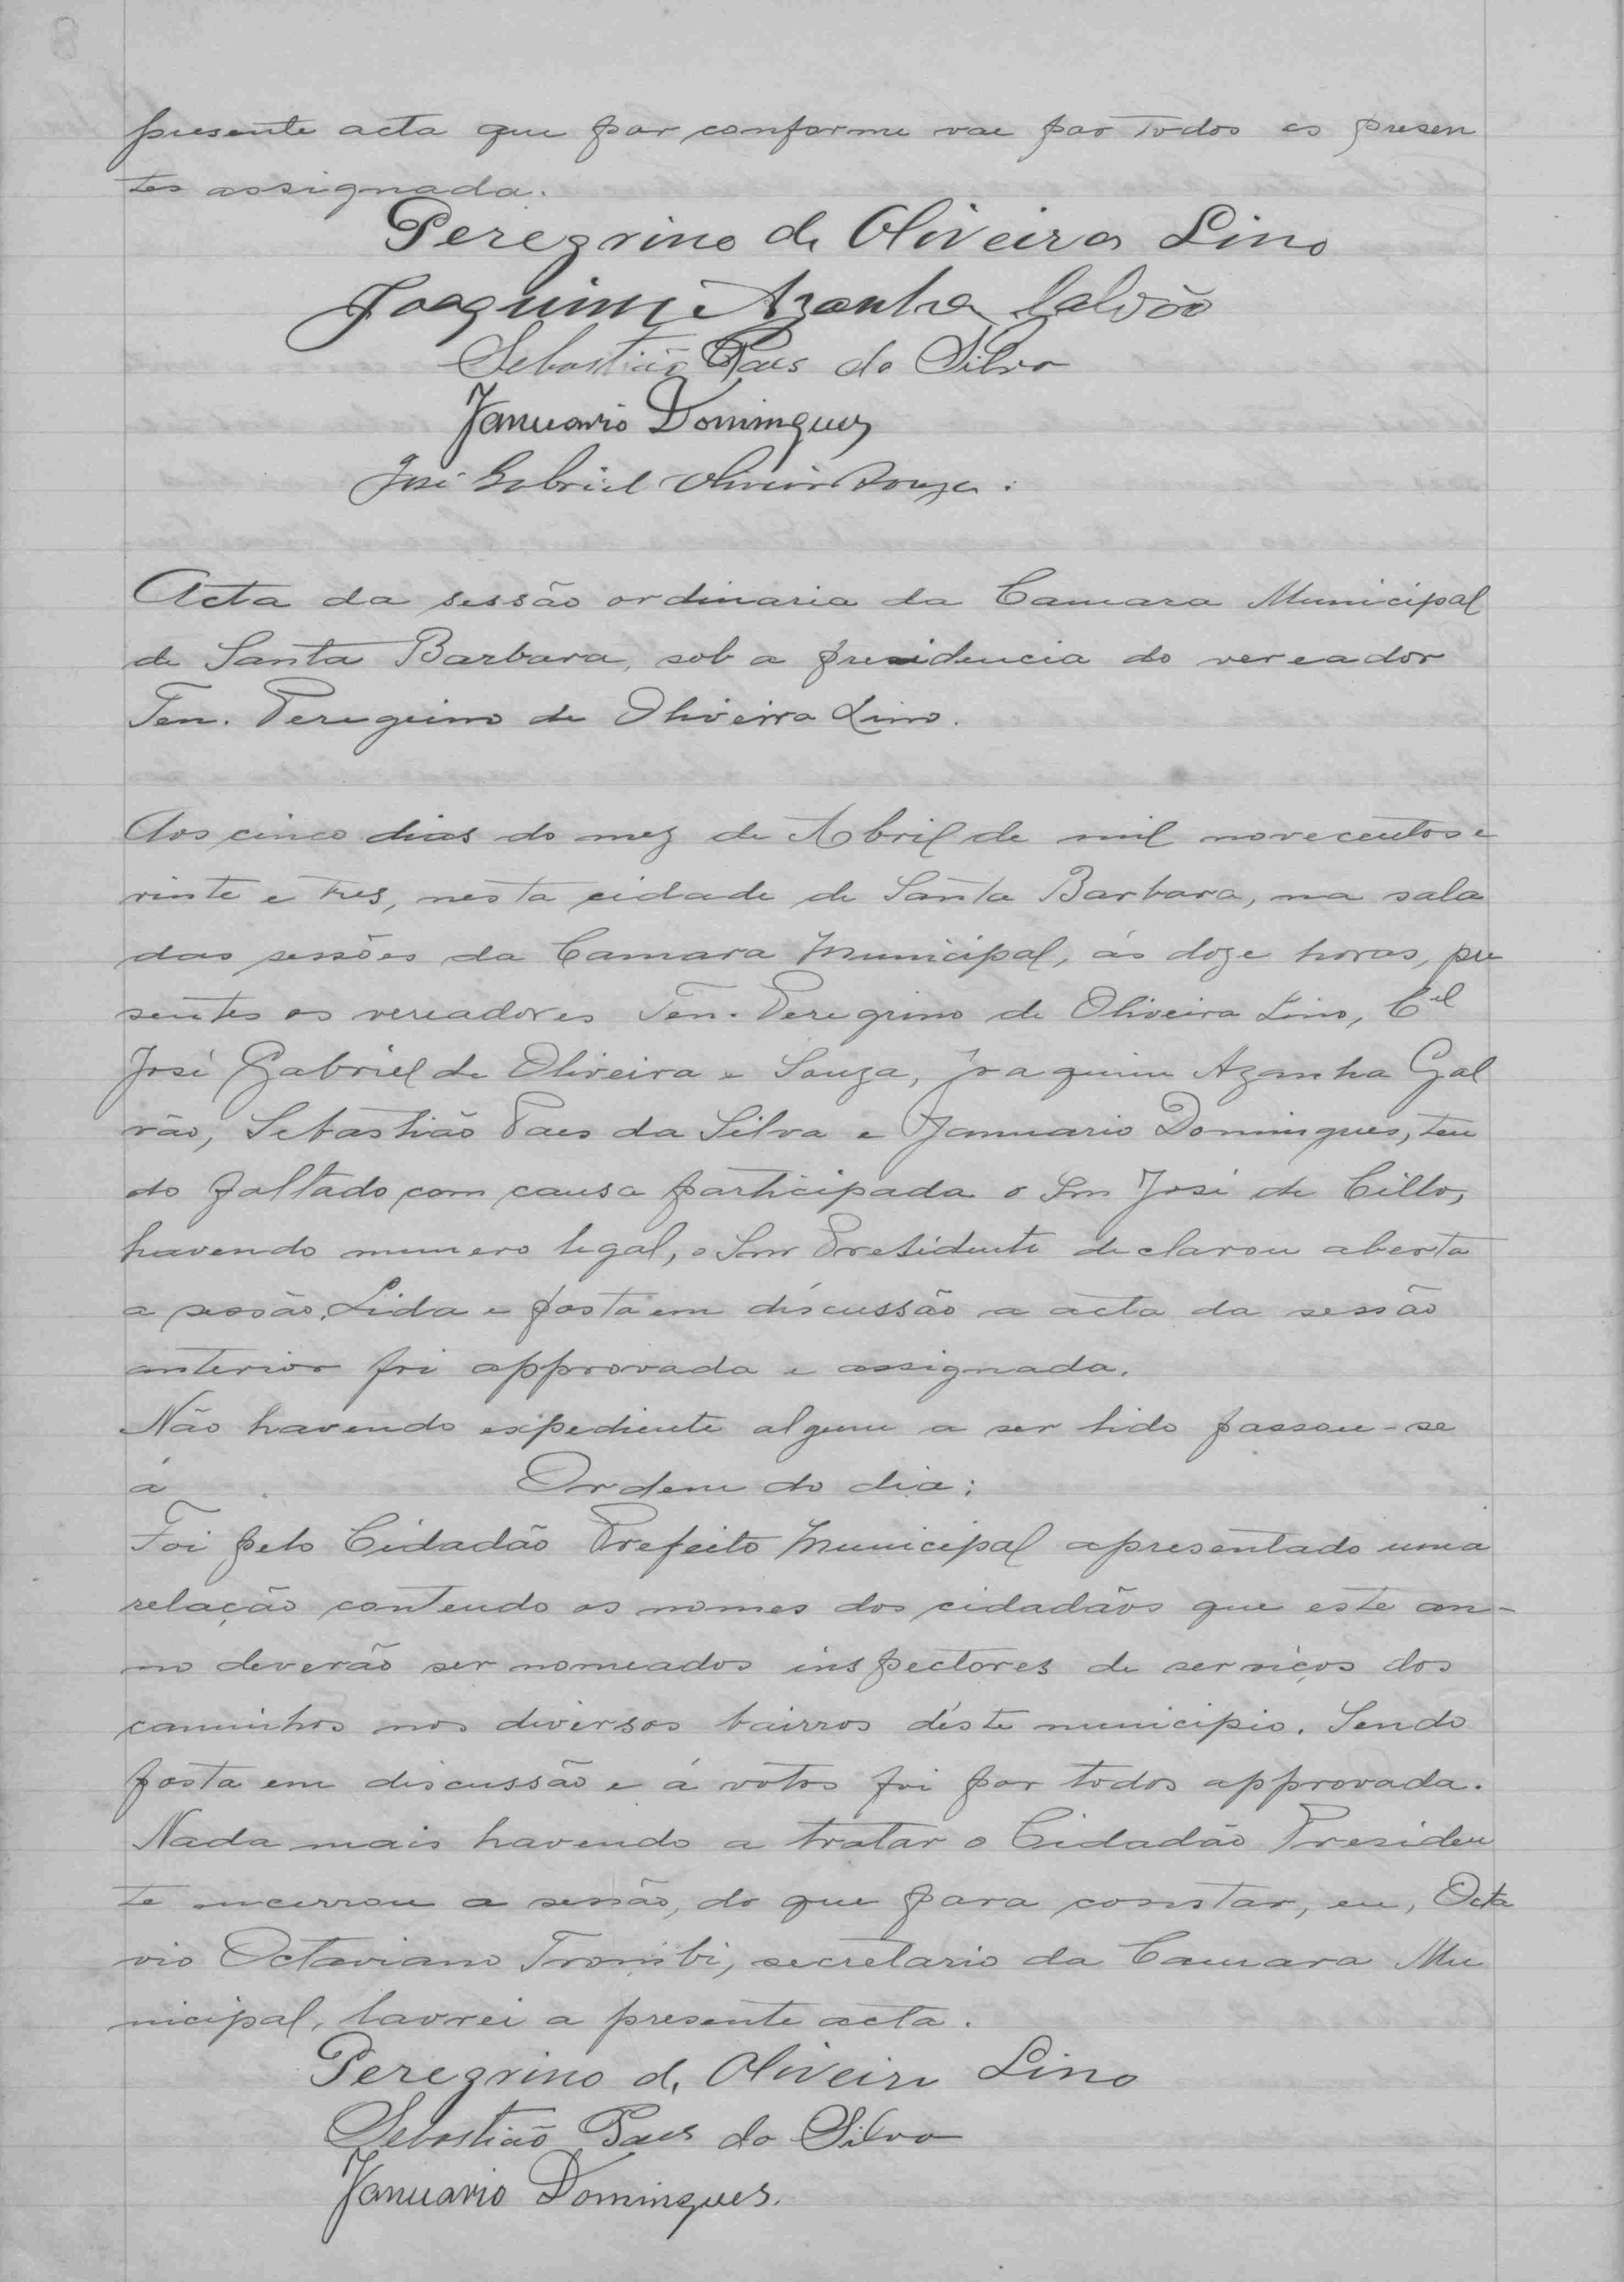 presente acta que por conforme vae por todos os presen
tes assignada.
Peregrino de Oliveira Lino
Joaquim Azanha Galvão
Sebastião Paes da Silva
Januario Domingues
José Gabriel Oliveira Souza.
Acta da sessão ordinaria da Camara Municipal
de Santa Barbara, sob a presidencia do vereador
Ten. Peregrino de Oliveira Lino.
Aos cinco dias do mez de Abril de mil novecentos e
vinte e tres, nesta cidade de Santa Barbara, na sala
das sessões da Camara Municipal, ás doze horas, pre
sentes os vereadores Ten. Peregrino de Oliveira Lino, Cel
José Gabriel de Oliveira e Souza, Joaquim Azanha Gal
vão, Sebastião Paes da Silva e Januario Domingues, ten
do faltado com causa participada o Snr José de Cillo,
havendo numero legal, o Snr Presidente declarou aberta
a sessão. Lida e posta em discussão a acta da sessão
anterior foi approvada e assignada.
Não havendo expediente algum a ser lido passou-se
á Ordem do dia:
Foi pelo Cidadão Prefeito Municipal apresentado uma
relação contendo os nomes dos cidadãos que este an-
no deverão ser nomeados inspectores de serviços dos
caminhos nos diversos bairros déste municipio. Sendo
posta em discussão e á votos foi por todos approvada.
Nada mais havendo a tratar o Cidadão Presiden
te encerrou a sessão, do que para constar, eu, Octa
vio Octaviano Trombi, secretario da Camara Mu
nicipal, lavrei a presente acta.
Peregrino d. Oliveira Lino
Sebastião Paes da Silva
Januario Domingues.